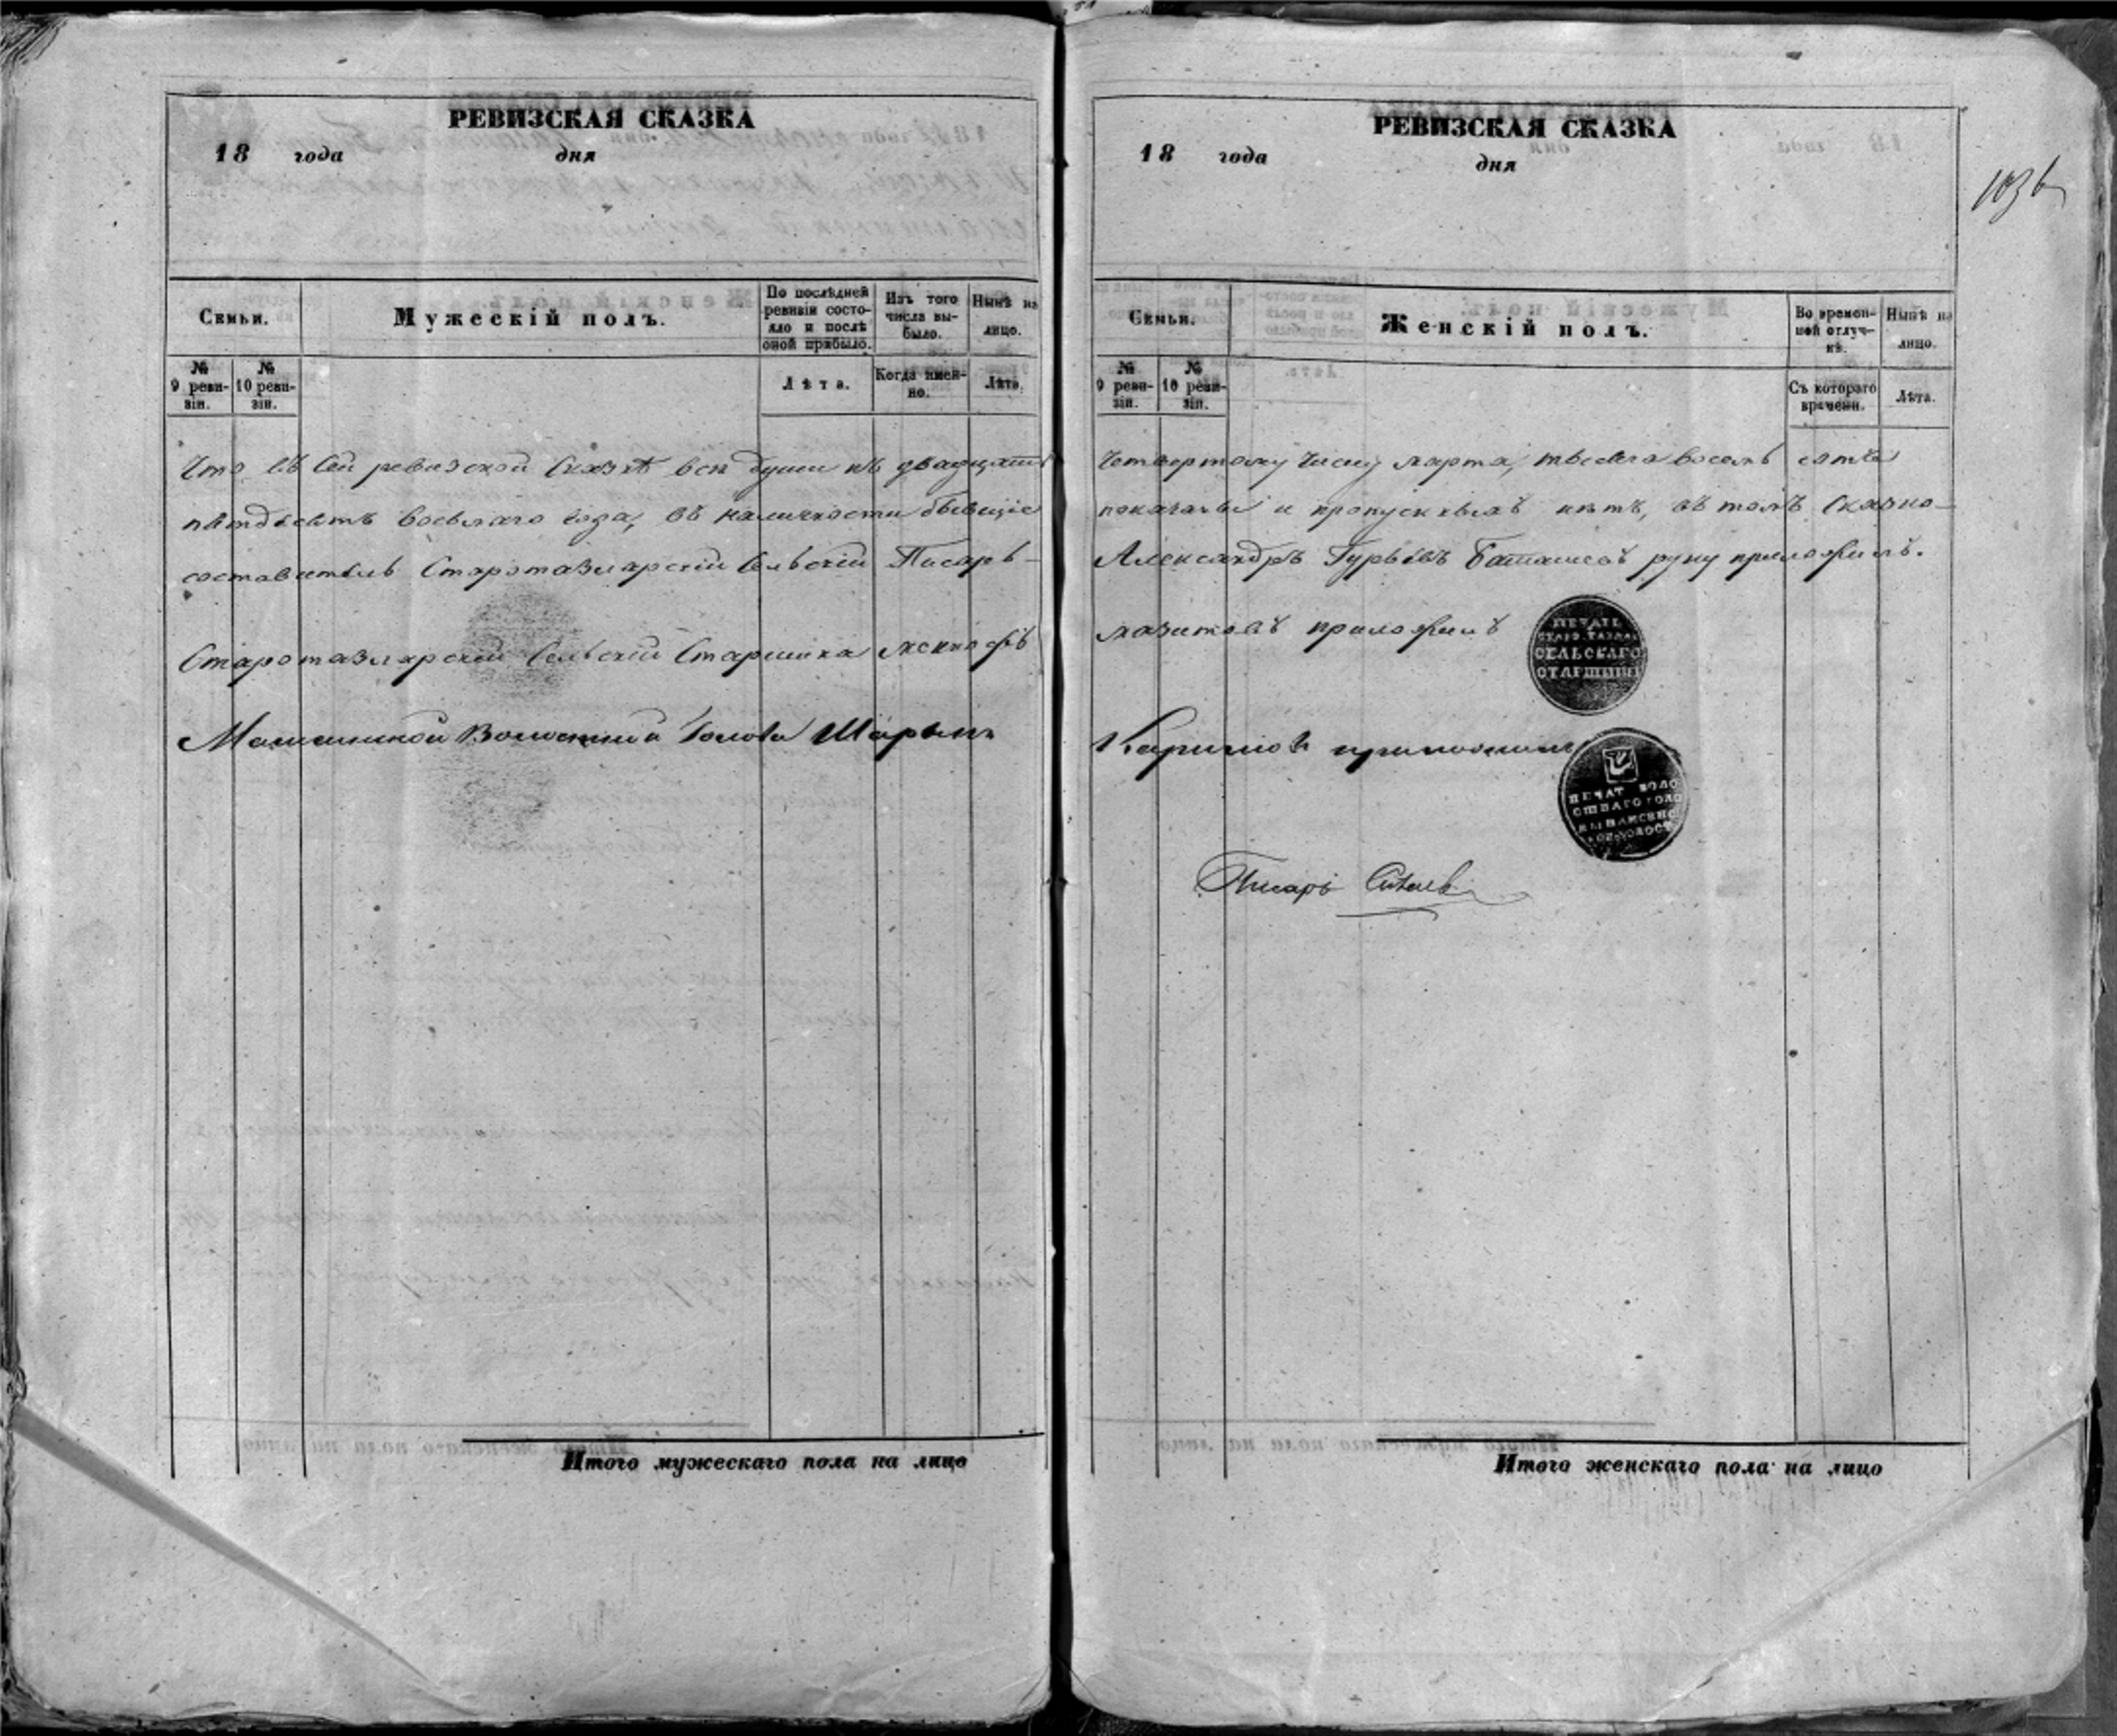 РЕВИЗСКАЯ СКАЗКА
18 года дня
Семьи.
Мужескій полъ.
По послѣдней ревизіи состояло и послѣ оной прибыло.
Изъ того числа выбыло.
Нынѣ на лицо.
№ 9 ревизіи.
№ 10 ревизіи.
Лѣта.
Когда именно.
Лѣта.
Что въ сей ревизской сказкѣ всѣ души къ двадцать
пятдесятъ восьмаго года, въ наличности бывшіе
составитель Старотазларскій Сельскій Писарь
Старотазларскій Сельскій Старшина
Волостной Голова Шарыпъ
Итого мужескаго пола на лицо
РЕВИЗСКАЯ СКАЗКА
18 года дня
1036
Семьи.
Женскій полъ.
Во временной отлучкѣ.
Нынѣ на лицо.
№ 9 ревизіи.
№ 10 ревизіи.
Съ котораго времени.
Лѣта.
четвертому числу марта, тысяча восемь сотъ
показаны и пропускныхъ нѣтъ, въ томъ сказко-
Александръ Гурьевъ руку приложилъ.
приложилъ
ПЕЧАТЬ
СТАРО ТАЗЛАР
СЕЛЬСКАГО
СТАРШИНЫ
Каримов приложилъ
ПЕЧАТ ВОЛО
СТНАГО ГОЛО
Писарь
Итого женскаго пола на лицо